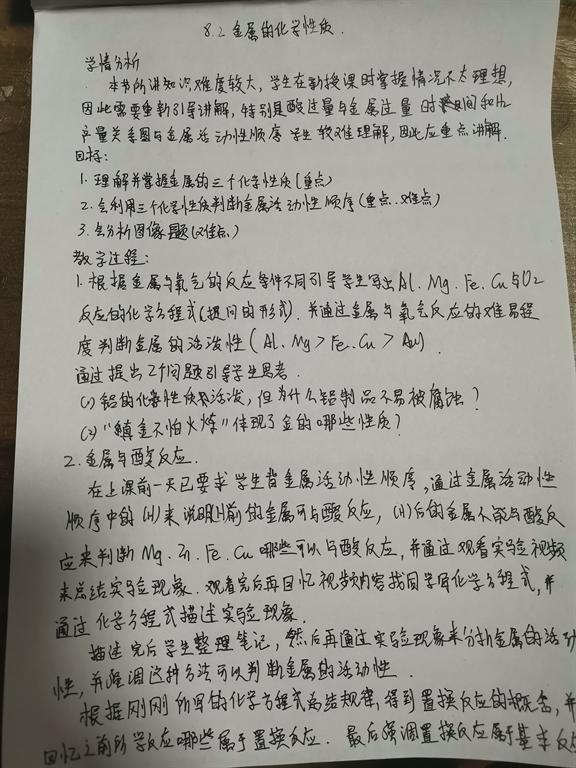 8.2 金属的化学性质.
学情分析
本书所讲知识难度较大, 学生在新授课时掌握情况不太理想,
因此需要重新引导讲解, 特别是酸过量与金属过量 时 间和H₂
产量关系图与金属活动性顺序学生较难理解, 因此应重点讲解.
目标:
1. 理解并掌握金属的三个化学性质(重点)
2. 会利用三个化学性质判断金属活动性顺序(重点. 难点)
3. 会分析图像题(难点)
教学过程:
1. 根据金属与氧气的反应条件不同引导学生写出Al. Mg. Fe. Cu与O₂
反应的化学方程式(提问的形式). 并通过金属与氧气反应的难易程
度判断金属的活泼性(Al. Mg > Fe. Cu > Au)
通过提出2个问题引导学生思考.
(1) 铝的化学性质很活泼, 但为什么铝制品不易被腐蚀?
(2) "真金不怕火炼"体现了金的哪些性质?
2. 金属与酸反应.
在上课前一天已要求学生背金属活动性顺序, 通过金属活动性
顺序中的(H)来说明(H)前的金属可与酸反应, (H)后的金属不能与酸反
应来判断Mg. Zn. Fe. Cu哪些可以与酸反应, 并通过观看实验视频
来总结实验现象. 观看完后再回忆视频内容找同学写化学方程式, 并
通过化学方程式描述实验现象.
描述完后学生整理笔记, 然后再通过实验现象来分析金属的活动
性, 并强调这种方法可以判断金属的活动性.
根据刚刚所写的化学方程式总结规律, 得到置换反应的概念, 并
回忆之前所学反应哪些属于置换反应. 最后强调置换反应属于基本反应